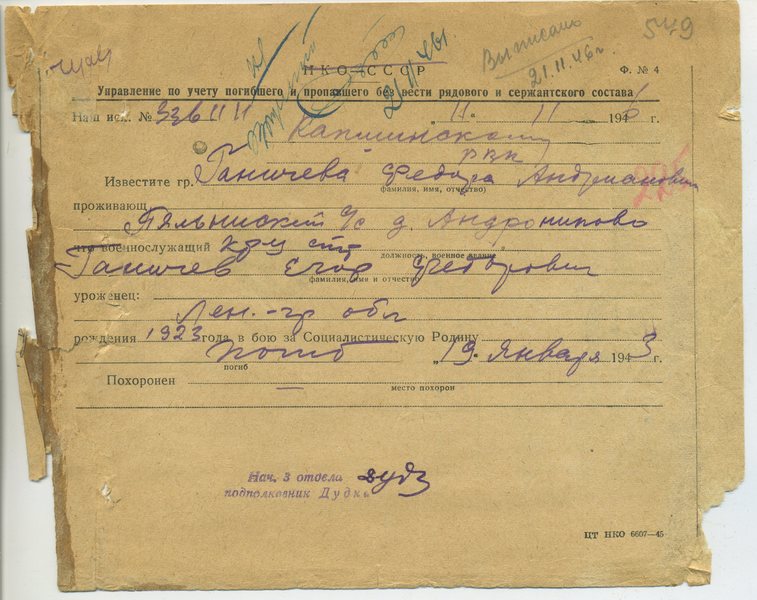 549
Выписано
21.11.46г.
21.11.46г.
НКО СССР
Ф. № 4
Управление по учету погибшего и пропавшего без вести рядового и сержантского состава
Наш исх. № 11 „11“ 11 1946 г.
Капшинскому
РВК
Известите гр. Ганичева Федора Андриановича
фамилия, имя, отчество)
проживающ
с/с д. Андрониково
что военнослужащий кр-ц стр
должность, военное звание
Ганичев Егор Федорович
фамилия, имя и отчество
уроженец:
Лен-гр обл
рождения 1923 года в бою за Социалистическую Родину
погиб „19“ января 1943 г.
погиб
Похоронен —
место похорон
Нач. 3 отдела
подполковник Дудка
ЦТ НКО 6607—45